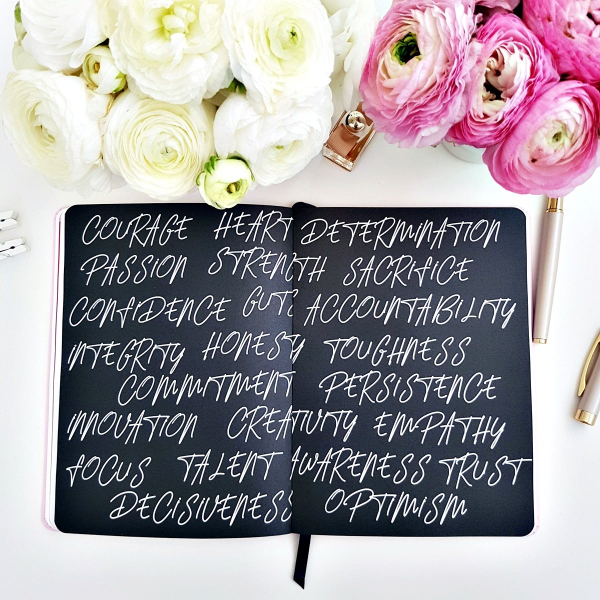 COURAGE HEART DETERMINATION
PASSION STRENGTH SACRIFICE
CONFIDENCE GUTS ACCOUNTABILITY
INTEGRITY HONESTY TOUGHNESS
COMMITMENT PERSISTENCE
INNOVATION CREATIVITY EMPATHY
FOCUS TALENT AWARENESS TRUST
DECISIVENESS OPTIMISM